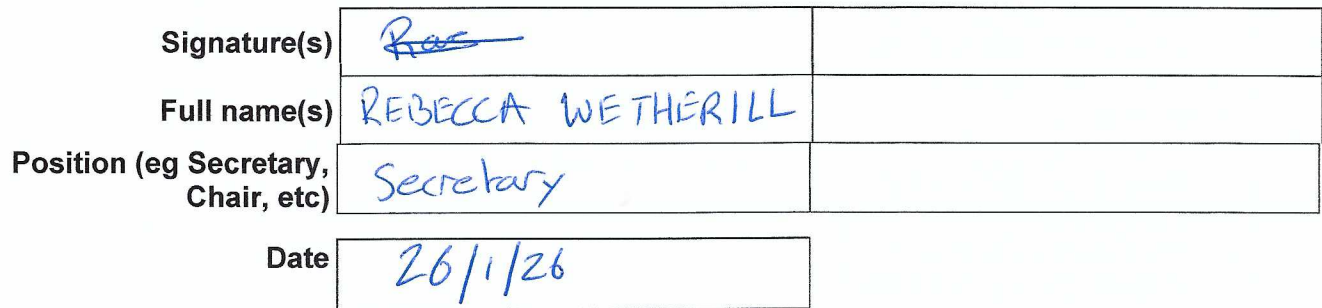 Signature(s)
Full name(s) REBECCA WETHERILL
Position (eg Secretary,
Chair, etc) Secretary
Date 26/1/26